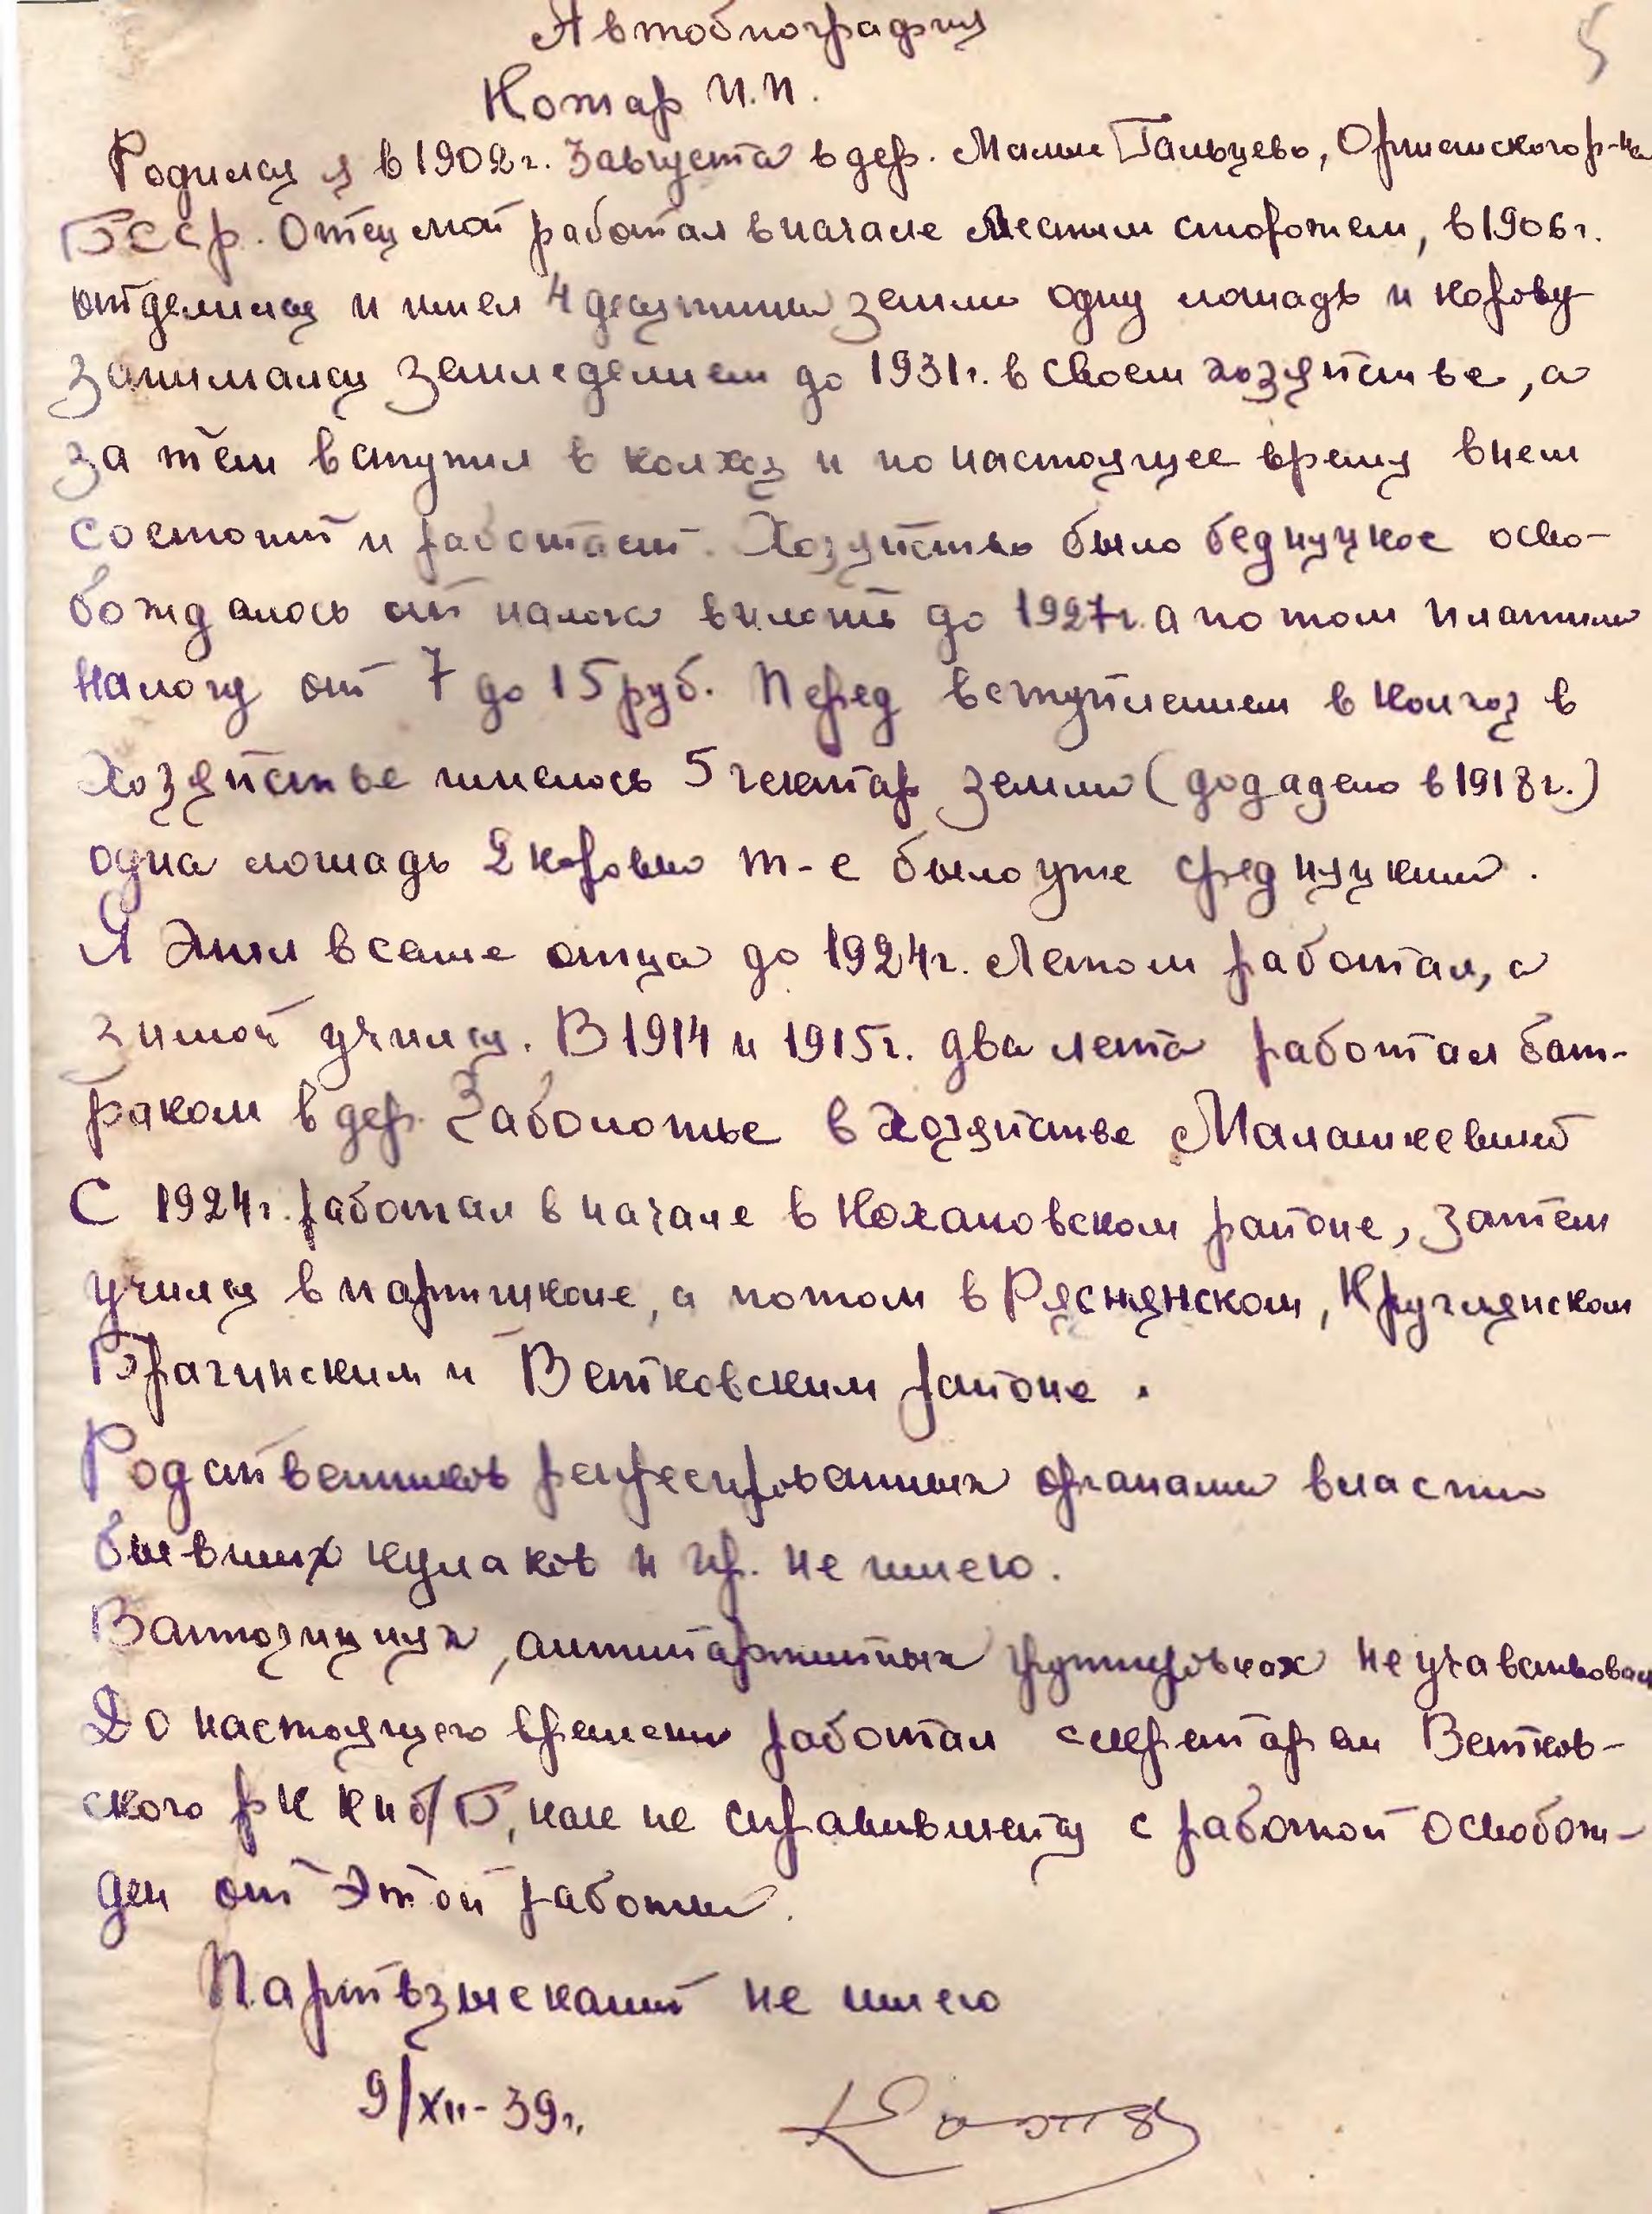 5
Автобиография
Котар И.И.
Родился я в 1902 г. 3 августа в дер. Малые Гальцево, Оршанского р-на
БССР. Отец мой работал вначале лесным сторожем, в 1906 г.
отделился и имел 4 десятины земли одну лошадь и корову
занимался земледелием до 1931 г. в своем хозяйстве, а
за тем вступил в колхоз и по настоящее время в нем
состоит и работает. Хозяйство было бедняцкое осво-
бождалось от налога вплоть до 1927 г. а потом платили
налогу от 7 до 15 руб. Перед вступлением в колхоз в
хозяйстве имелось 5 гектар земли (дододено в 1918 г.)
одна лошадь 2 коровы т-е было уже средняцким.
Я жил в семье отца до 1924 г. Летом работал, а
зимой учился. В 1914 и 1915 г. два лета работал бат-
раком в дер. Заболотье в хозяйстве Малашкевит
С 1924 г. работал в начале в Кохановском районе, затем
учился в партшколе, а потом в Ряснянском, Круглянском
Брагинским и Ветковским районе.
Родственников репресированных органами власти
бывших кулаков и пр. не имею.
В антопозициях, антипартийных группировках не учавствовал
До настоящего времени работал секретарем Ветков-
ского РК КПб/Б, как не справившийся с работой освобож-
ден от этой работы.
Партвзысканий не имею
9/XII-39 г.